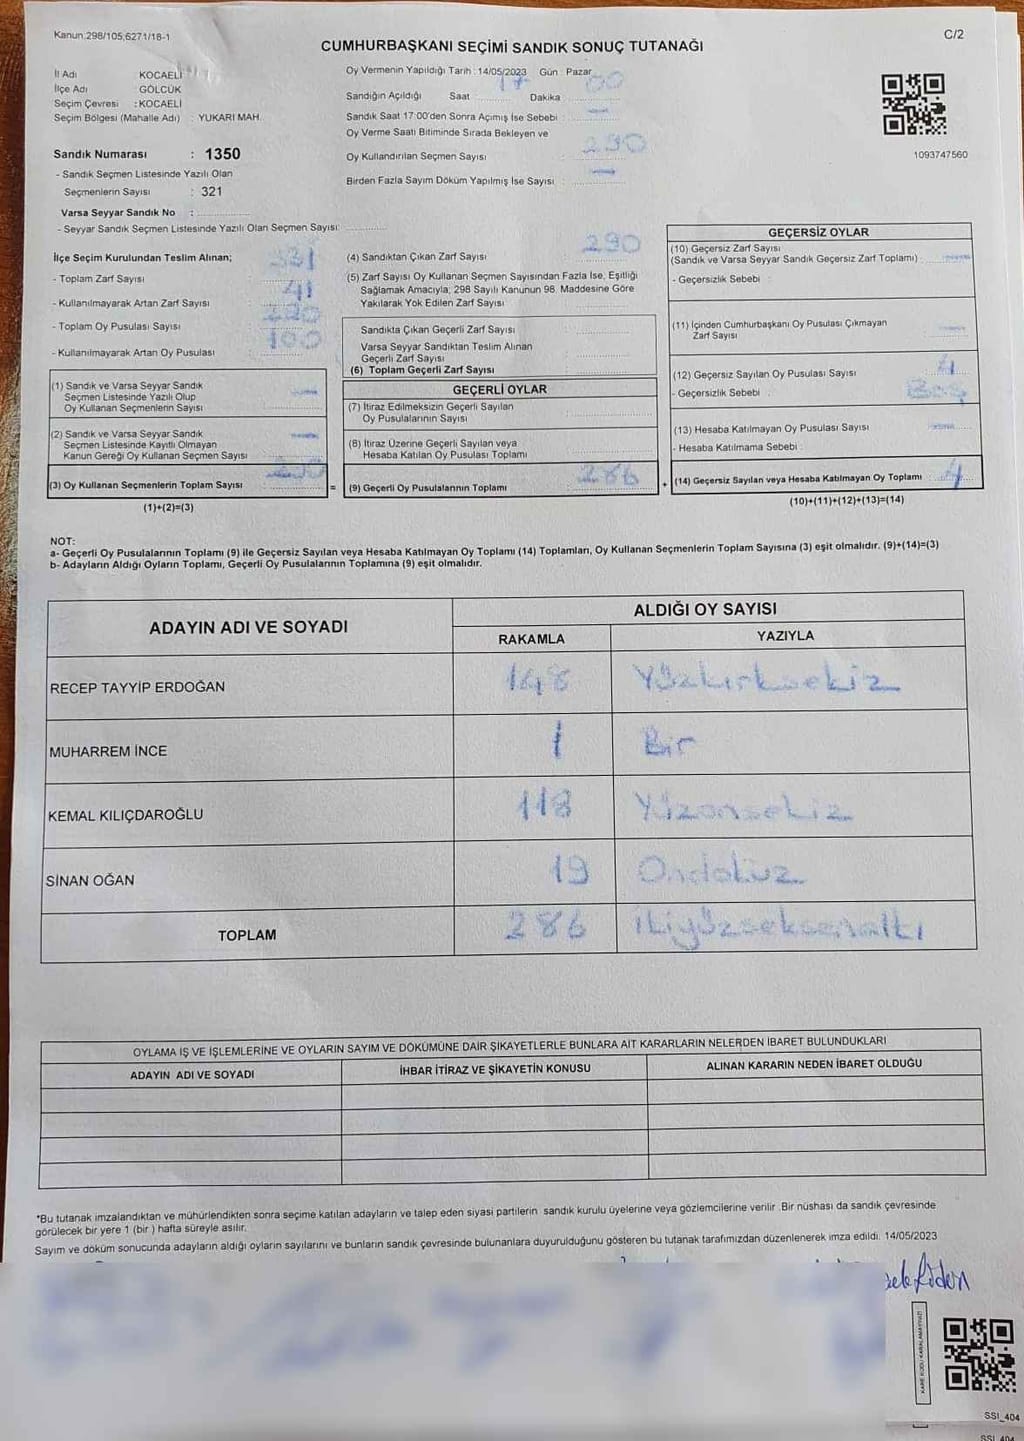 Kanun.298/105,6271/18-1
C/2
CUMHURBAŞKANI SEÇİMİ SANDIK SONUÇ TUTANAĞI
İl Adı KOCAELİ
İlçe Adı : GÖLCÜK
Seçim Çevresi : KOCAELİ
Seçim Bölgesi (Mahalle Adı) : YUKARI MAH.
Sandık Numarası : 1350
- Sandık Seçmen Listesinde Yazılı Olan
Seçmenlerin Sayısı : 321
Varsa Seyyar Sandık No :
- Seyyar Sandık Seçmen Listesinde Yazılı Olan Seçmen Sayısı:
Oy Vermenin Yapıldığı Tarih : 14/05/2023 Gün : Pazar
Sandığın Açıldığı Saat 17 Dakika 00
Sandık Saat 17:00'den Sonra Açımış İse Sebebi : —
Oy Verme Saati Bitiminde Sırada Bekleyen ve
Oy Kullandırılan Seçmen Sayısı : 290
Birden Fazla Sayım Döküm Yapılmış İse Sayısı : —
1093747560
İlçe Seçim Kurulundan Teslim Alınan;
- Toplam Zarf Sayısı 331
- Kullanılmayarak Artan Zarf Sayısı 41
- Toplam Oy Pusulası Sayısı
- Kullanılmayarak Artan Oy Pusulası 100
(1) Sandık ve Varsa Seyyar Sandık
Seçmen Listesinde Yazılı Olup
Oy Kullanan Seçmenlerin Sayısı —
(2) Sandık ve Varsa Seyyar Sandık
Seçmen Listesinde Kayıtlı Olmayan
Kanun Gereği Oy Kullanan Seçmen Sayısı —
(3) Oy Kullanan Seçmenlerin Toplam Sayısı =
(1)+(2)=(3)
(4) Sandıktan Çıkan Zarf Sayısı 290
(5) Zarf Sayısı Oy Kullanan Seçmen Sayısından Fazla İse, Eşitliği
Sağlamak Amacıyla; 298 Sayılı Kanunun 98. Maddesine Göre
Yakılarak Yok Edilen Zarf Sayısı
Sandıkta Çıkan Geçerli Zarf Sayısı
Varsa Seyyar Sandıktan Teslim Alınan
Geçerli Zarf Sayısı
(6) Toplam Geçerli Zarf Sayısı
GEÇERLİ OYLAR
(7) İtiraz Edilmeksizin Geçerli Sayılan
Oy Pusulalarının Sayısı
(8) İtiraz Üzerine Geçerli Sayılan veya
Hesaba Katılan Oy Pusulası Toplamı
(9) Geçerli Oy Pusulalarının Toplamı 286 +
GEÇERSİZ OYLAR
(10) Geçersiz Zarf Sayısı
(Sandık ve Varsa Seyyar Sandık Geçersiz Zarf Toplamı) : —
- Geçersizlik Sebebi :
(11) İçinden Cumhurbaşkanı Oy Pusulası Çıkmayan
Zarf Sayısı —
(12) Geçersiz Sayılan Oy Pusulası Sayısı 4
- Geçersizlik Sebebi : Boş
(13) Hesaba Katılmayan Oy Pusulası Sayısı —
- Hesaba Katılmama Sebebi :
(14) Geçersiz Sayılan veya Hesaba Katılmayan Oy Toplamı 4
(10)+(11)+(12)+(13)=(14)
NOT:
a- Geçerli Oy Pusulalarının Toplamı (9) ile Geçersiz Sayılan veya Hesaba Katılmayan Oy Toplamı (14) Toplamları, Oy Kullanan Seçmenlerin Toplam Sayısına (3) eşit olmalıdır. (9)+(14)=(3)
b- Adayların Aldığı Oyların Toplamı, Geçerli Oy Pusulalarının Toplamına (9) eşit olmalıdır.
ADAYIN ADI VE SOYADI
ALDIĞI OY SAYISI
RAKAMLA YAZIYLA
RECEP TAYYİP ERDOĞAN 148 Yüzkırksekiz
MUHARREM İNCE 1 Bir
KEMAL KILIÇDAROĞLU 118 Yüzonsekiz
SİNAN OĞAN 19 Ondokuz
TOPLAM 286 ikiyüzseksenaltı
OYLAMA İŞ VE İŞLEMLERİNE VE OYLARIN SAYIM VE DÖKÜMÜNE DAİR ŞİKAYETLERLE BUNLARA AİT KARARLARIN NELERDEN İBARET BULUNDUKLARI
ADAYIN ADI VE SOYADI İHBAR İTİRAZ VE ŞİKAYETİN KONUSU ALINAN KARARIN NEDEN İBARET OLDUĞU
*Bu tutanak imzalandıktan ve mühürlendikten sonra seçime katılan adayların ve talep eden siyasi partilerin sandık kurulu üyelerine veya gözlemcilerine verilir. Bir nüshası da sandık çevresinde
görülecek bir yere 1 (bir ) hafta süreyle asılır.
Sayım ve döküm sonucunda adayların aldığı oyların sayılarını ve bunların sandık çevresinde bulunanlara duyurulduğunu gösteren bu tutanak tarafımızdan düzenlenerek imza edildi. 14/05/2023
KARE KODU KARALAMAYINIZ!
SSI_404
SSI_404